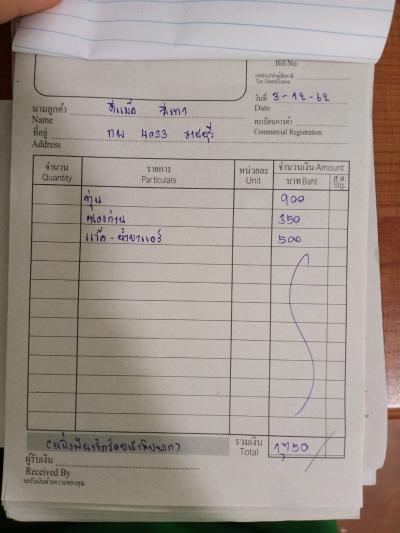 Bill No.
เลขประจำตัวผู้เสียภาษี
Tax Identification
วันที่ 3-12-62
Date
นามลูกค้า
Name
ทะเบียนการค้า
Commercial Registration
ที่อยู่ กพ 4033 ราชบุรี
Address
จำนวน
Quantity
รายการ
Particulars
หน่วยละ
Unit
จำนวนเงิน Amount
บาท Baht
ส.ต.
Stg.
900
ซองถ่าน 350
แว็ค - น้ำยาแอร์ 500
(หนึ่งพันเจ็ดร้อยห้าสิบบาท)
รวมเงิน
Total
1,750
ผู้รับเงิน
Received By
ขอรับเงินด้วยความขอบคุณ